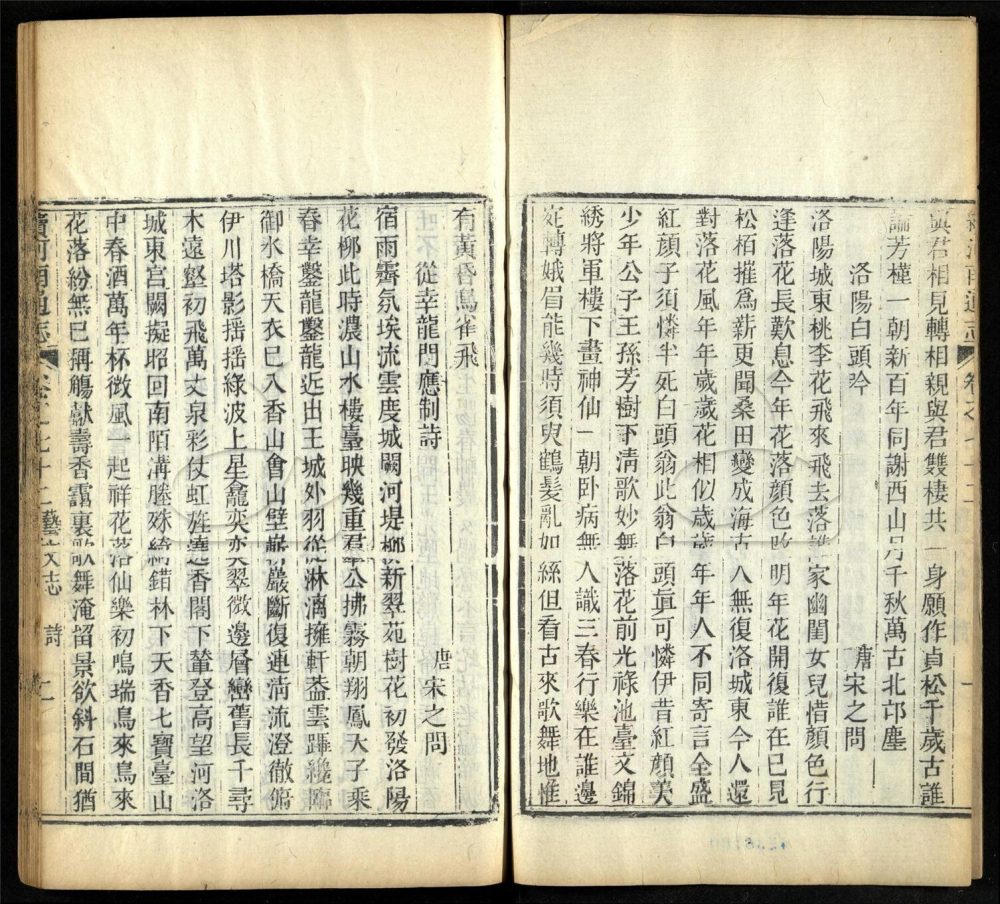 續河南通志 卷之七十二
與君相見轉相親與君雙棲共一身願作貞松千歲古誰
論芳槿一朝新百年同謝西山日千秋萬古北邙塵
洛陽白頭吟 唐宋之問
洛陽城東桃李花飛來飛去落誰家幽閨女兒惜顏色行
逢落花長歎息今年花落顏色改明年花開復誰在已見
松柏摧爲薪更聞桑田變成海古人無復洛城東今人還
對落花風年年歲歲花相似歲歲年年人不同寄言全盛
紅顏子須憐半死白頭翁此翁白頭真可憐伊昔紅顏美
少年公子王孫芳樹下清歌妙舞落花前光祿池臺文錦
綉將軍樓下畫神仙一朝臥病無人識三春行樂在誰邊
宛轉娥眉能幾時須臾鶴髮亂如絲但看古來歌舞地惟
有黃昏鳥雀飛
從幸龍門應制詩 唐宋之問
宿雨霽氛埃流雲度城闕河堤柳新翠苑樹花初發洛陽
花柳此時濃山水樓臺映幾重羣公拂霧朝翔鳳天子乘
春幸鑿龍鑿龍近出王城外羽從淋漓擁軒蓋雲蹕纔臨
御水橋天衣已入香山會山壁嶄巖斷復連清流澄徹俯
伊川塔影揺揺綠波上星龕奕奕翠微邊層巒舊長千尋
木遠壑初飛萬丈泉彩仗虹旌遶香閣下輦登高望河洛
城東宮闕擬昭回南陌溝塍殊綺錯林下天香七寶臺山
中春酒萬年杯微風一起祥花落仙樂初鳴瑞鳥來鳥來
花落紛無已稱觴獻壽香靄裏歌舞淹留景欲斜石間猶
續河南通志 卷之七十二藝文志 詩